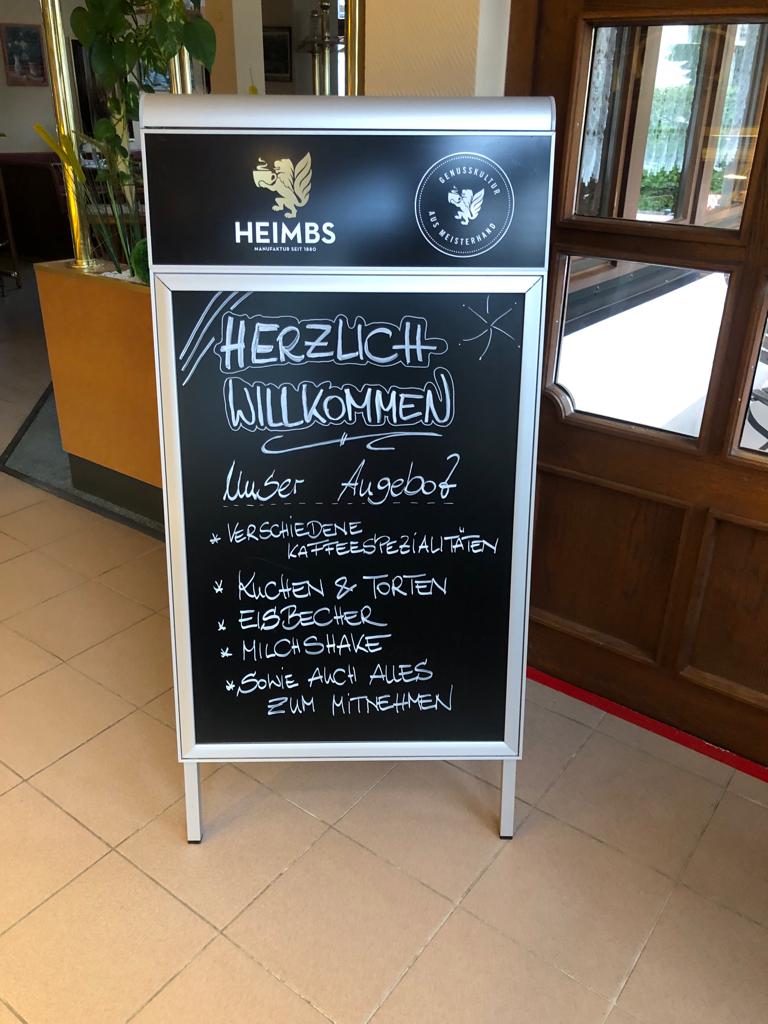 HEIMBS
MANUFAKTUR SEIT 1880
GENUSSKULTUR
AUS MEISTERHAND
HERZLICH
WILLKOMMEN
Unser Angebot
* VERSCHIEDENE
KAFFEESPEZIALITÄTEN
* KUCHEN & TORTEN
* EISBECHER
* MILCHSHAKE
* SOWIE AUCH ALLES
ZUM MITNEHMEN